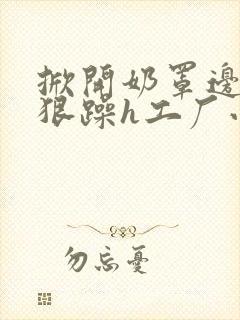 掀開奶罩邊
狠躁h工厂
勿忘憂